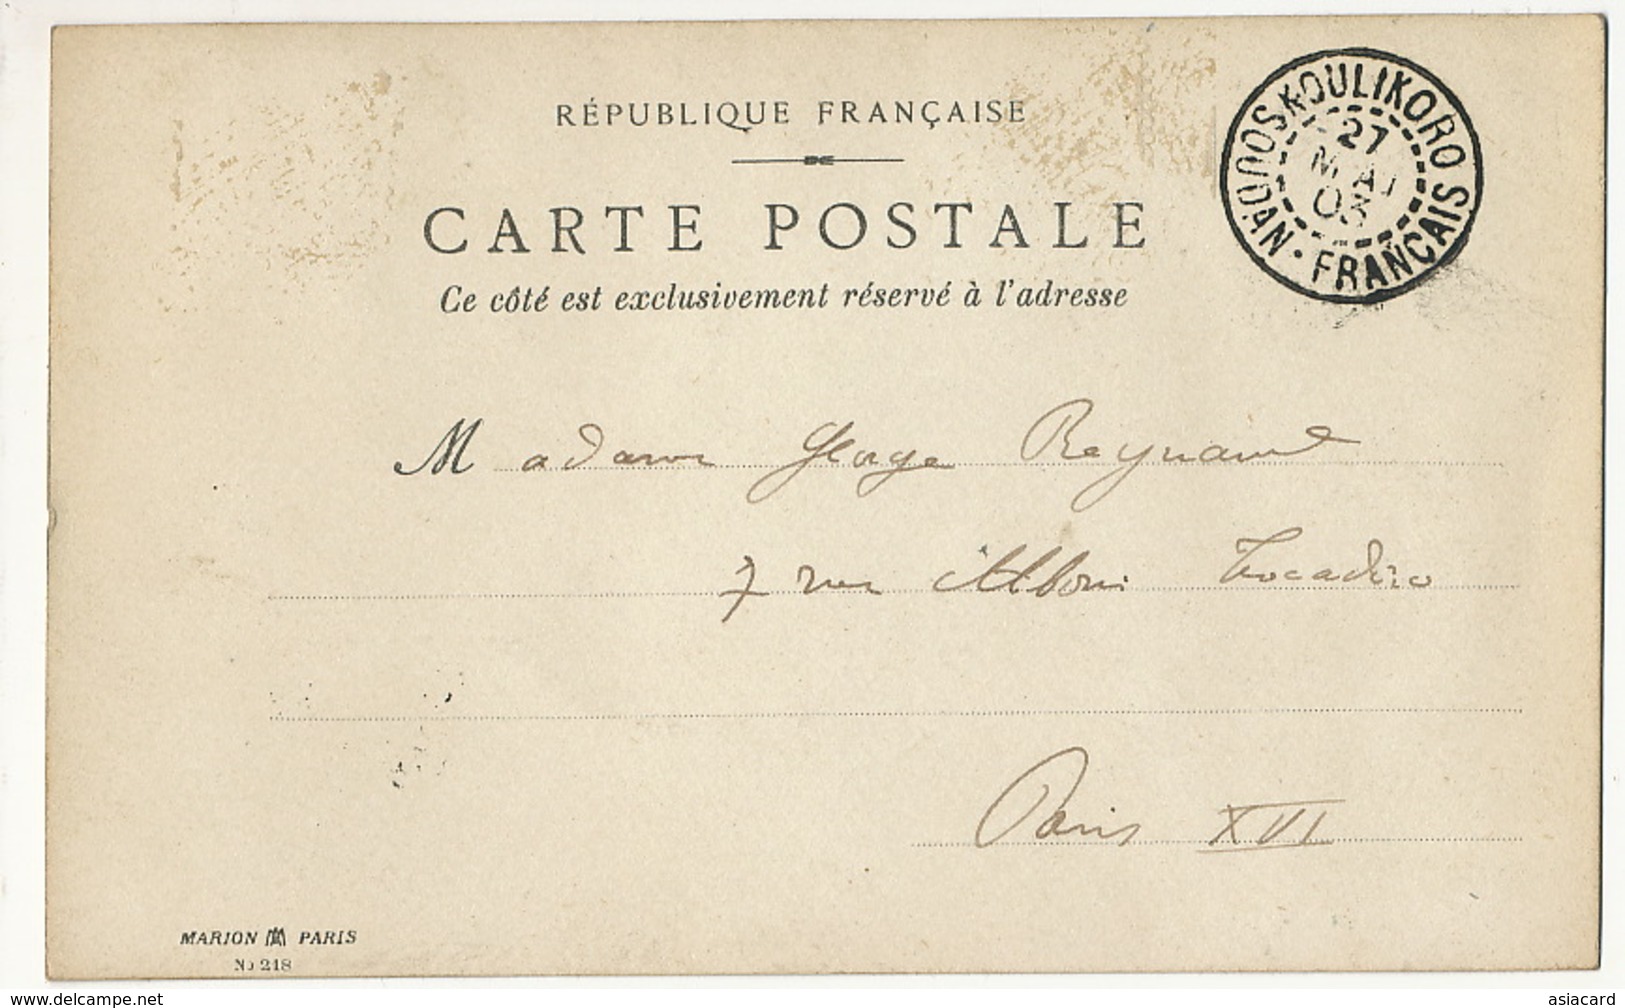 RÉPUBLIQUE FRANÇAISE
KOULIKORO
27
MAI
03
SOUDAN · FRANCAIS
CARTE POSTALE
Ce côté est exclusivement réservé à l'adresse
Madame George Reynaud
7 rue Alboni Trocadéro
Paris XVI
MARION M PARIS
No 218
www.delcampe.net
asiacard